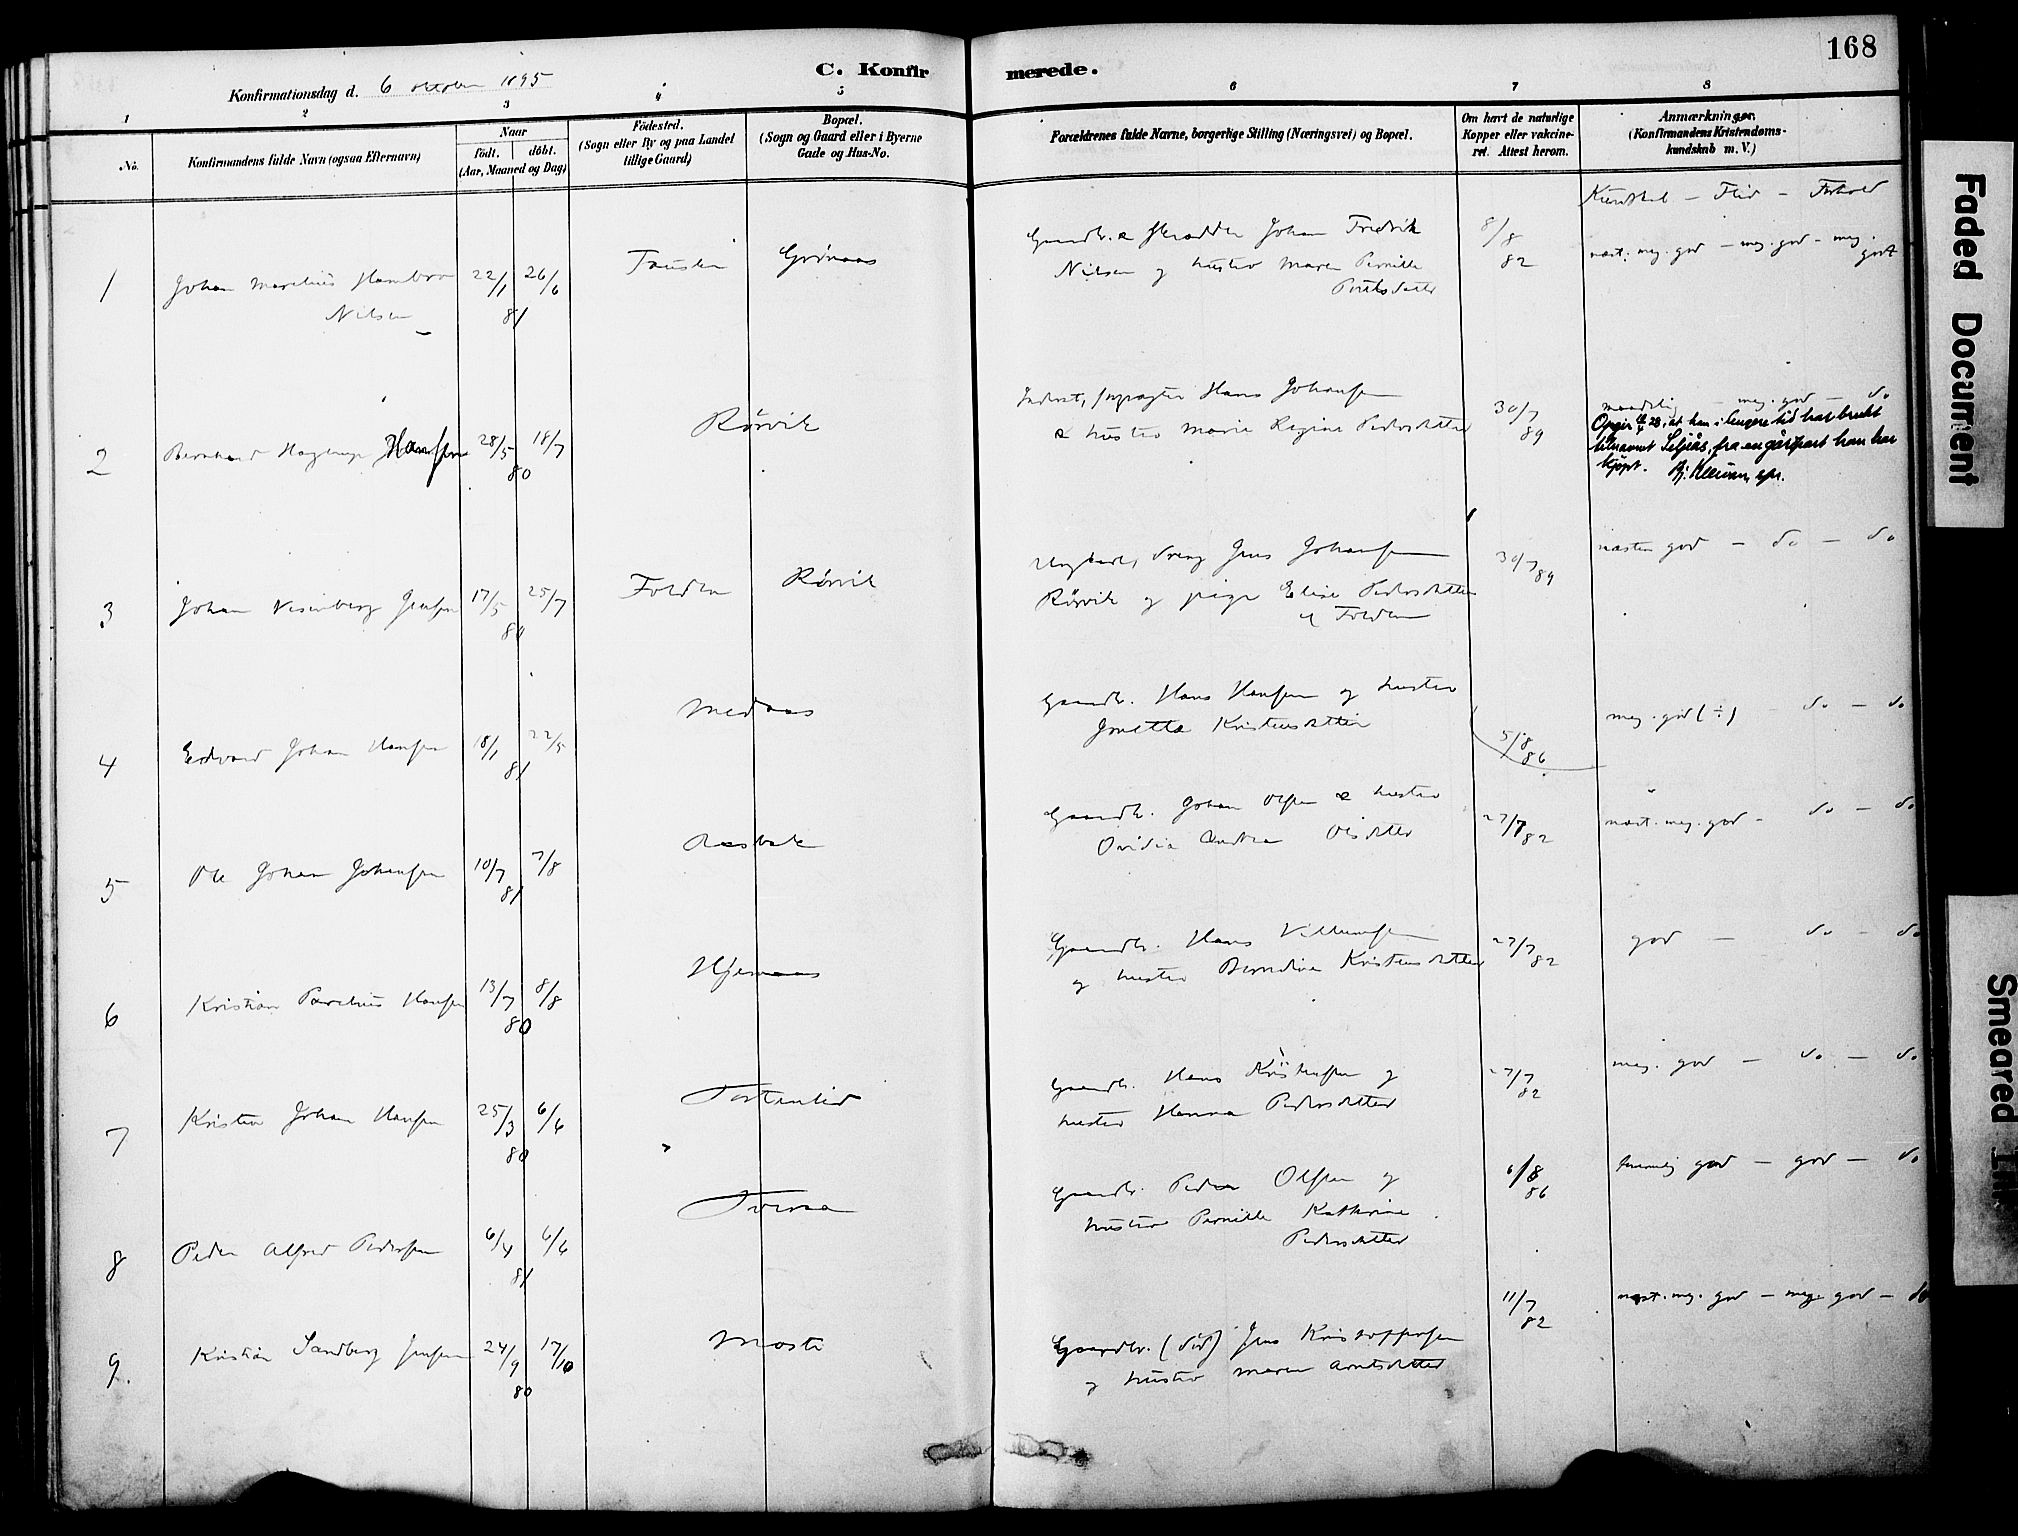 168
C. Konfirmerede.
Konfirmationsdag d. 6 oktober 1895
1 2 3 4 5 6 7 8
No.
Konfirmandens fulde Navn (ogsaa Efternavn)
Naar
födt. döbt.
(Aar, Maaned og Dag)
Födested.
(Sogn eller By og paa Landet
tillige Gaard)
Bopæl.
(Sogn og Gaard eller i Byerne
Gade og Hus-No.
Forældrenes fulde Navne, borgerlige Stilling (Næringsvei) og Bopæl.
Om havt de naturlige
Kopper eller vakcine-
ret. Attest herom.
Anmærkninger.
(Konfirmandens Kristendoms-
kundskab m. V.)
Kundskab — Flid — Forhold
1 Johan Marelius Hambro 22/1 26/6 Fauske Grønaas
Nilsen 81
Gaardbr. & skrædder Johan Fredrik 8/8 82
Nilsen og hustru Maren Pernille
næst. meg. god — meg. god — meg. godt
2 Bernhard Hagerup Hansen 28/5 18/7 80 Rørvik
Inderst, Hans Johansen 30/7 89
& hustru Marie Regine Pedersdatter
maadelig — meg. god — do
Opgir 28, at han i lengere tid har brukt
tilnavnet Seljeås, fra en gårdpart han har
kjöpt. Bj. Kleivan, spr.
3 Johan Jensen 17/5 25/7 80 Folden Rørvik
Ungkarl, dreng Jens Johansen 30/7 89
Rørvik og pige Elise Pedersdatter
af Folden
næsten god — do — do
4 Edvard Johan Hansen 18/1 22/5 81 Medaas
Gaardbr. Hans Hansen og hustru
Kristensdatter 5/8 86
meg. god (÷) — do — do
5 Ole Johan Johansen 10/7 7/8 81 Aasbak
Gaardbr. Johan Olsen & hustru
Ovidia Andrea Olsdatter 27/7 82
næst. meg. god — do — do
6 Kristian Parelius Hansen 13/7 8/8 80 Hjemaas
Gaardbr. Hans Villumsen 27/7 82
og hustru Berndine Kristensdatter
god — do — do
7 Kristen Johan Hansen 25/3 6/6 80 Tortenlid
Gaardbr. Hans Kristensen og 27/7 82
hustru Hanna Pedersdatter
meg. god — do — do
8 Peder Alfred Pedersen 6/4 6/6 81 Tveraa
Gaardbr. Peder Olsen og 6/8 86
hustru Pernille Kathrine
Pedersdatter
temmelig god — god — do
9. Kristian Sandberg Jensen 24/9 17/10 80 Moste
Gaardbr. (død) Jens Kristoffersen 11/7 82
og hustru Maren Arntsdatter
næst. meg. god — meg. god — do
Faded Document
Smeared Ink